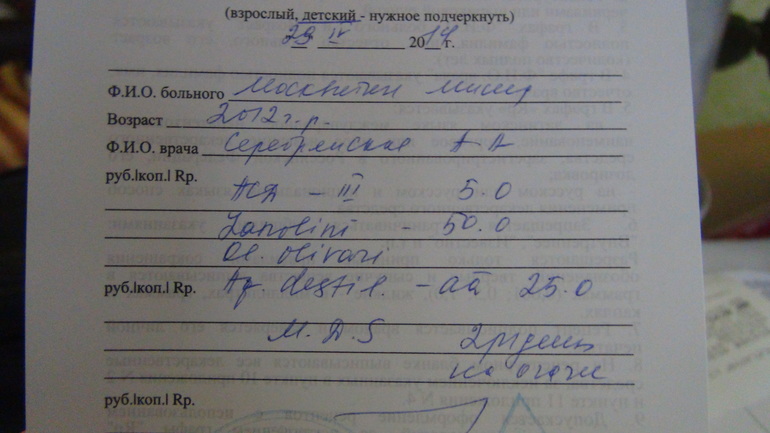 (взрослый, детский - нужное подчеркнуть)
29 IV 2014 г.
Ф.И.О. больного Москвитин
Возраст 2012 г.р.
Ф.И.О. врача Серебренская А А
руб.|коп.| Rp.
АСД - III 5.0
Lanolini - 50.0
Ol. olivari
руб.|коп.| Rp. Aq. destil. - aa 25.0
M. D. S 2 р/день
на очаги
руб.|коп.| Rp.